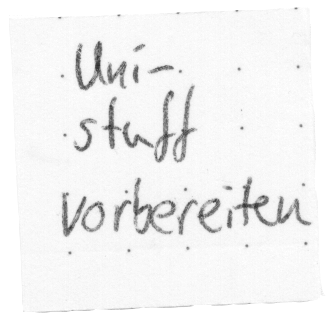 Uni-
stuff
vorbereiten